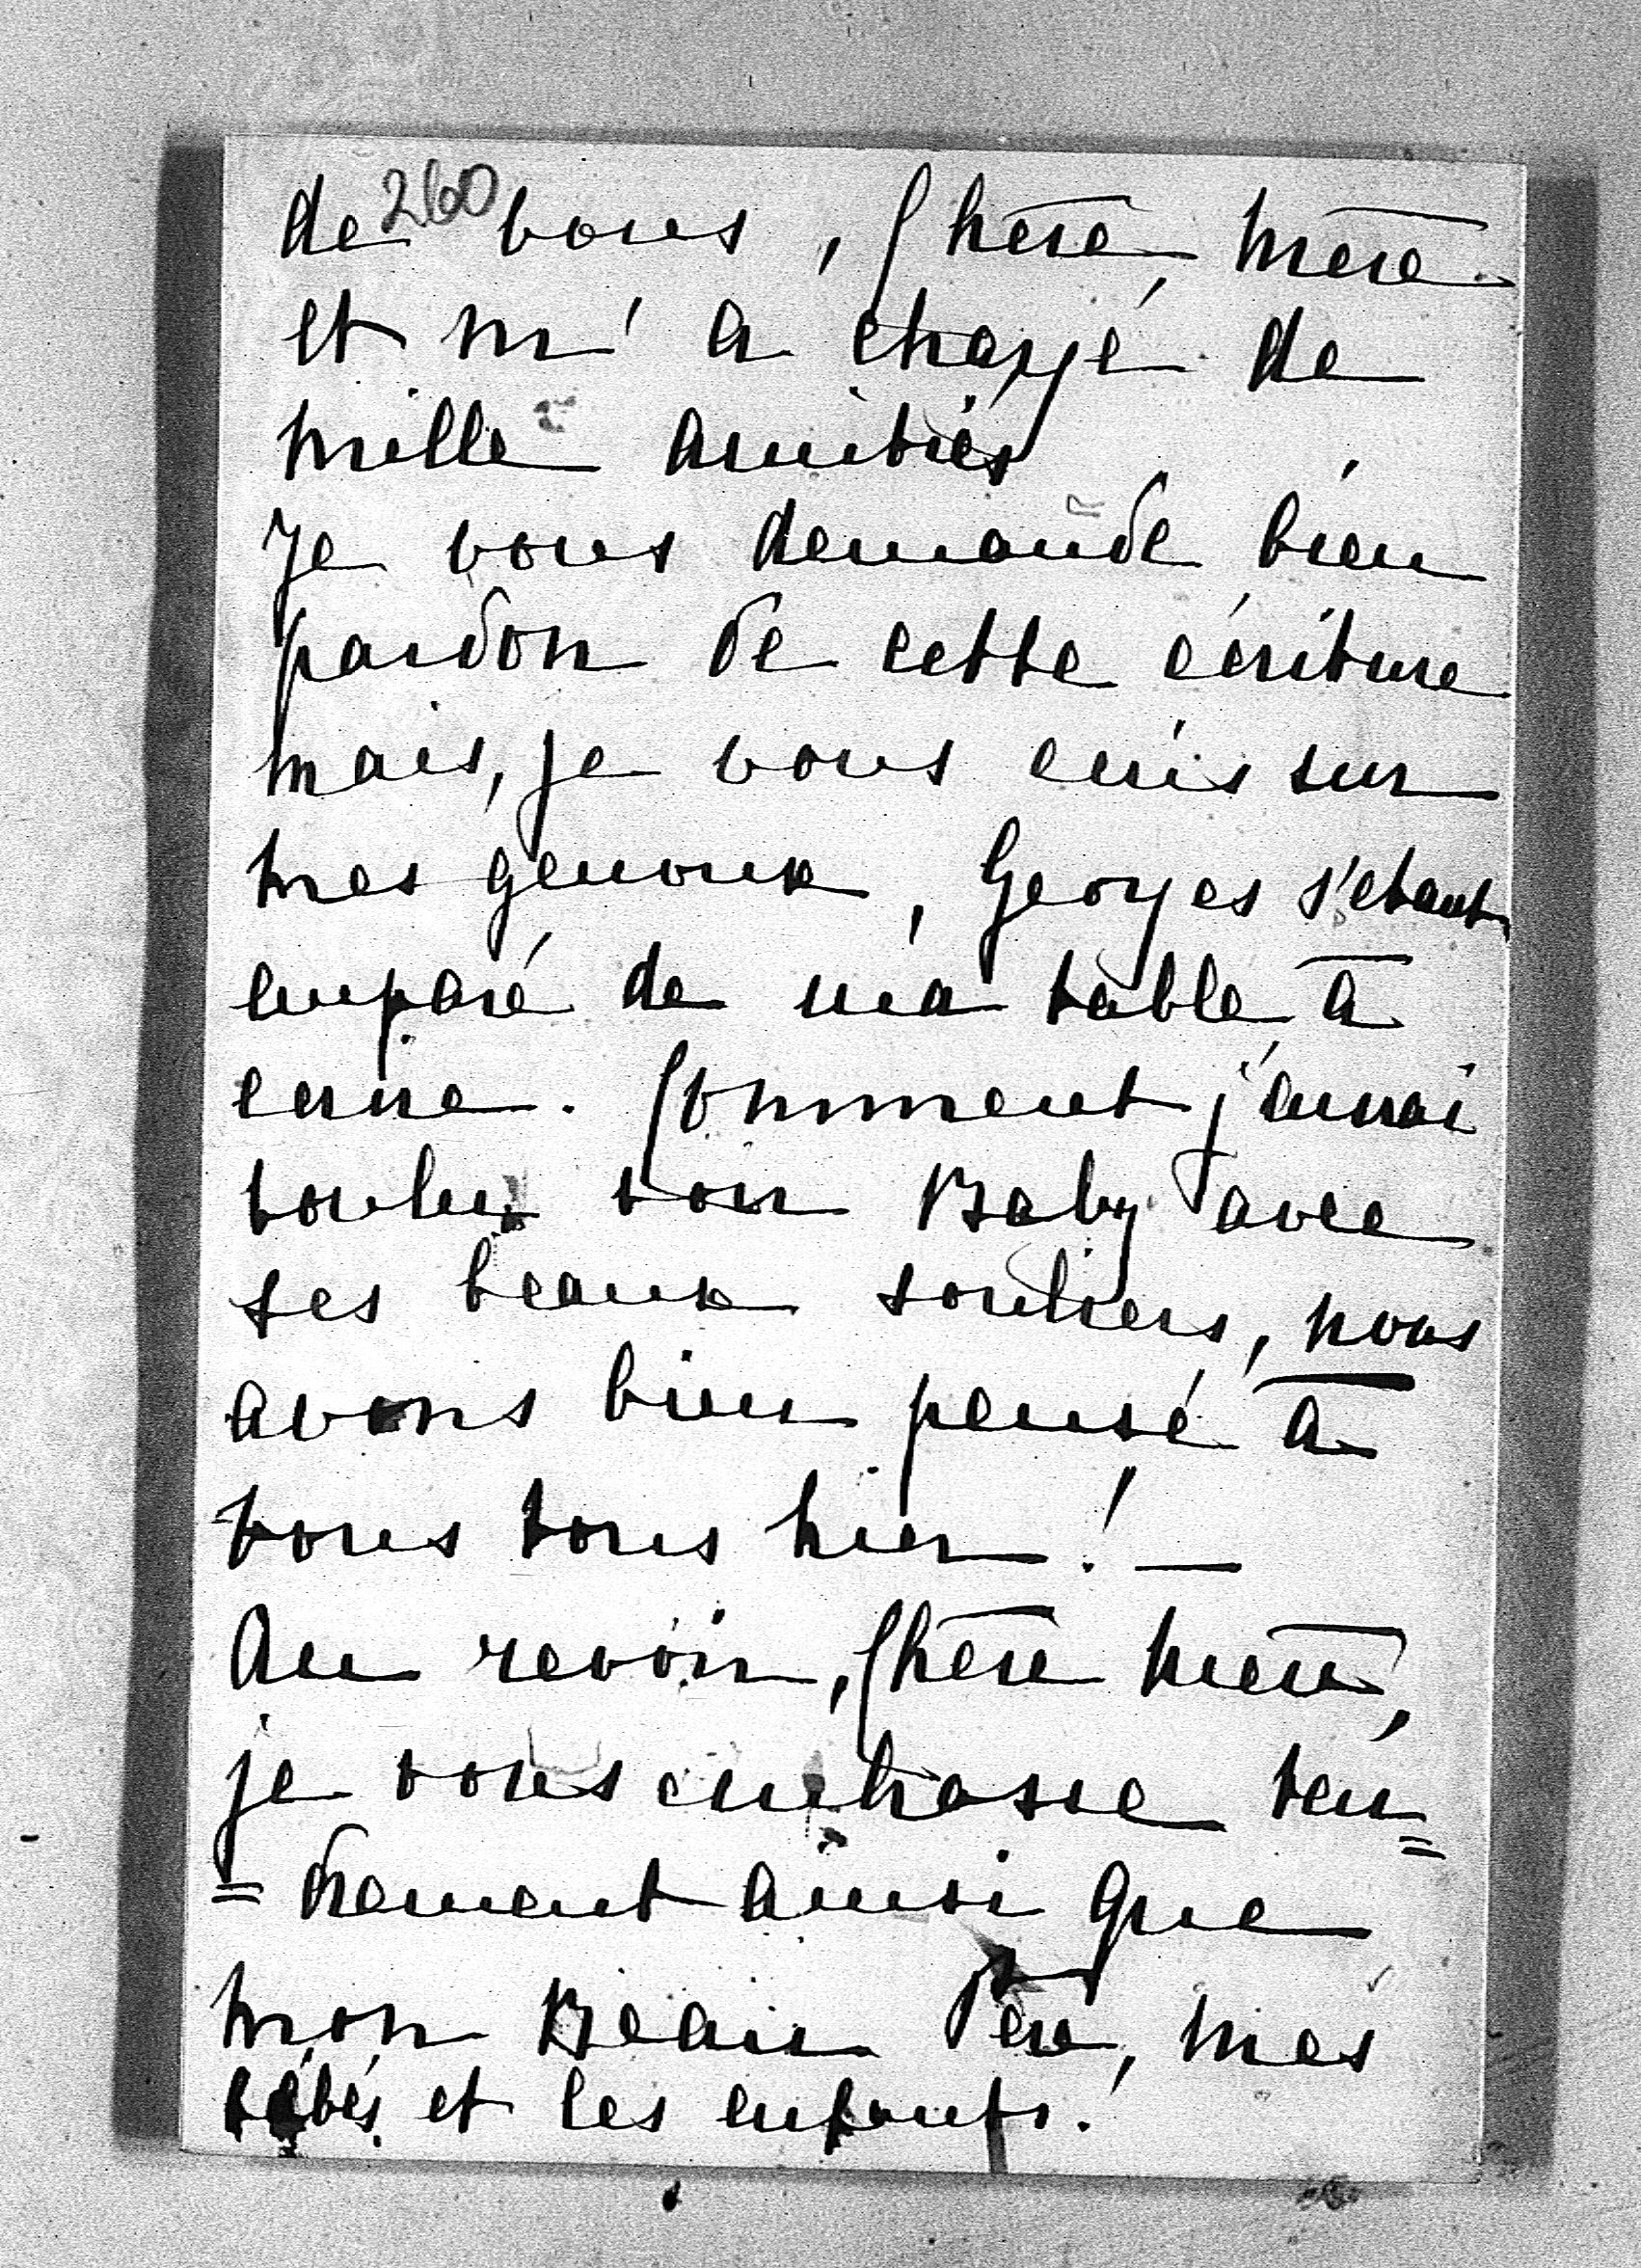 260
de vous, Chère, mère
et m'a chargé de
mille amitiés
Je vous demande bien
pardon de cette écriture
mais, je vous écris sur
mes genoux, Georges s'étant
emparé de ma table à
écrire. Comment j'aurai
voulu voir Baby avec
ses beaux souliers, nous
avons bien pensé à
vous tous hier! —
Au revoir, Chère mère,
je vous embrasse ten=
=drement ainsi que
mon Beau Père, mes
bébés et les enfants.